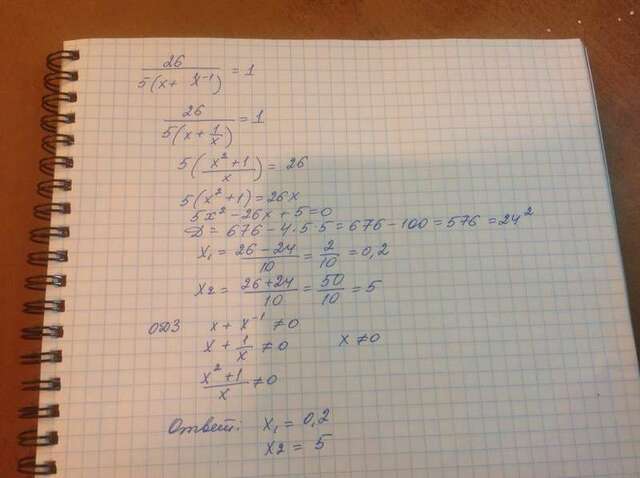 26/5(x + x⁻¹) = 1
26/5(x + 1/x) = 1
5(x² + 1/x) = 26
5(x² + 1) = 26x
5x² - 26x + 5 = 0
D = 676 - 4·5·5 = 676 - 100 = 576 = 24²
x₁ = 26 - 24/10 = 2/10 = 0,2
x2 = 26 + 24/10 = 50/10 = 5
ОДЗ x + x⁻¹ ≠ 0
x + 1/x ≠ 0 x ≠ 0
x² + 1/x ≠ 0
Ответ: x₁ = 0,2
x2 = 5